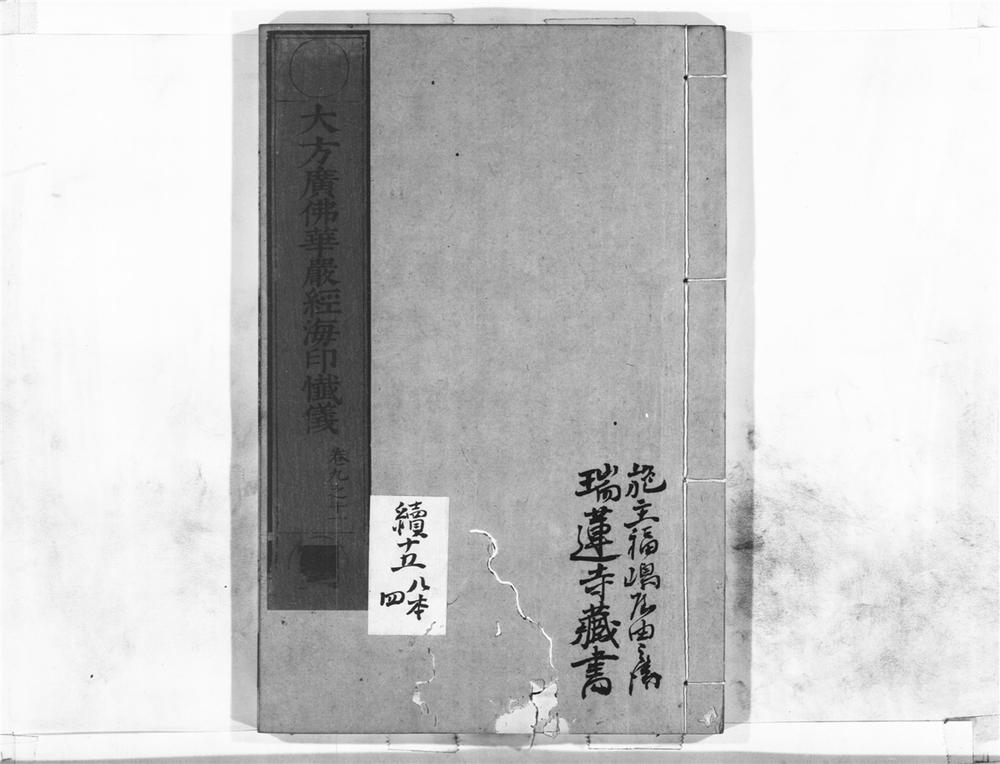 施主福嶋屋由兵衛
瑞蓮寺藏書
大方廣佛華嚴經海印懺儀
卷九之十一
續十五
八本
四